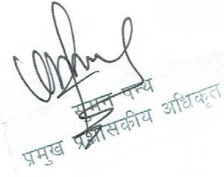 सुमन पन्थ
प्रमुख प्रशासकीय अधिकृत